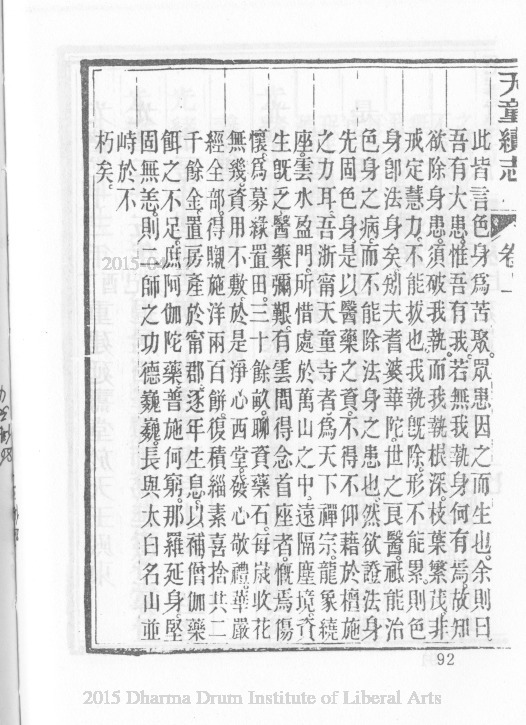 天童續志
卷上
此皆言色身爲苦聚眾患因之而生也余則曰
吾有大患惟吾有我若無我執身何有焉故知
欲除身患須破我執而我執根深枝葉繁茂非
戒定慧力不能拔也我執旣除形不能累則色
身卽法身矣剏夫耆婆華陀世之良醫祗能治
色身之病而不能除法身之患也然欲證法身
先固色身是以醫藥之資不得不仰藉於檀施
之力耳吾浙甯天童寺者爲天下禪宗龍象繞
座雲水盈門所惜處於萬山之中遠隔塵境資
生旣乏醫藥彌艱有雲間得念首座者慨焉傷
懷爲募緣置田三十餘畝聊資藥石每歲收花
無幾資用不敷於是淨心西堂發心敬禮華嚴
經全部得䞋施洋兩百餅復積緇素喜捨共二
千餘金置房產於甯郡逐年生息以補僧伽藥
餌之不足庶阿伽陀藥普施何窮那羅延身堅
固無恙則二師之功德巍巍長與太白名山並
峙於不
朽矣
92
2015 Dharma Drum Institute of Liberal Arts